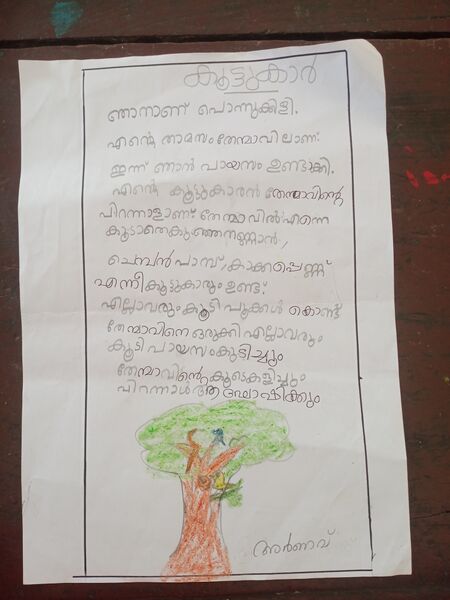 കൂട്ടുകാർ
ഞാനാണ് പൊന്നുക്കിളി.
എന്റെ താമസം തേന്മാവിലാണ്.
ഇന്ന് ഞാൻ പായസം ഉണ്ടാക്കി.
എന്റെ കൂട്ടുകാരൻ തേന്മാവിന്റെ
പിറന്നാളാണ് തേന്മാവിൽ എന്നെ
കൂടാതെ കുഞ്ഞനണ്ണാൻ,
ചെമ്പൻ പാമ്പ്, കാക്കപ്പെണ്ണ്
എന്നീ കൂട്ടുകാരും ഉണ്ട്.
എല്ലാവരും കൂടി പൂക്കൾ കൊണ്ട്
തേന്മാവിനെ ഒരുക്കി എല്ലാവരും
കൂടി പായസം കുടിച്ചും
തേന്മാവിന്റെ കൂടെ കളിച്ചും
പിറന്നാൾ ആഘോഷിക്കും
അർണാവ്